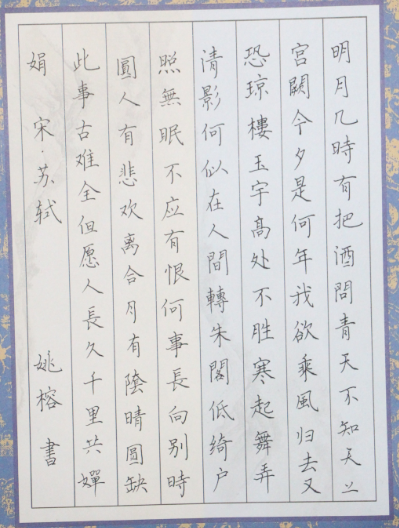 明月几時有把酒問青天不知天上
宫闕今夕是何年我欲乘風归去又
恐琼樓玉宇高处不胜寒起舞弄
清影何似在人間轉朱閣低绮户
照無眠不应有恨何事長向别時
圓人有悲欢离合月有陰晴圓缺
此事古难全但愿人長久千里共嬋
娟 宋·苏轼 姚榕書